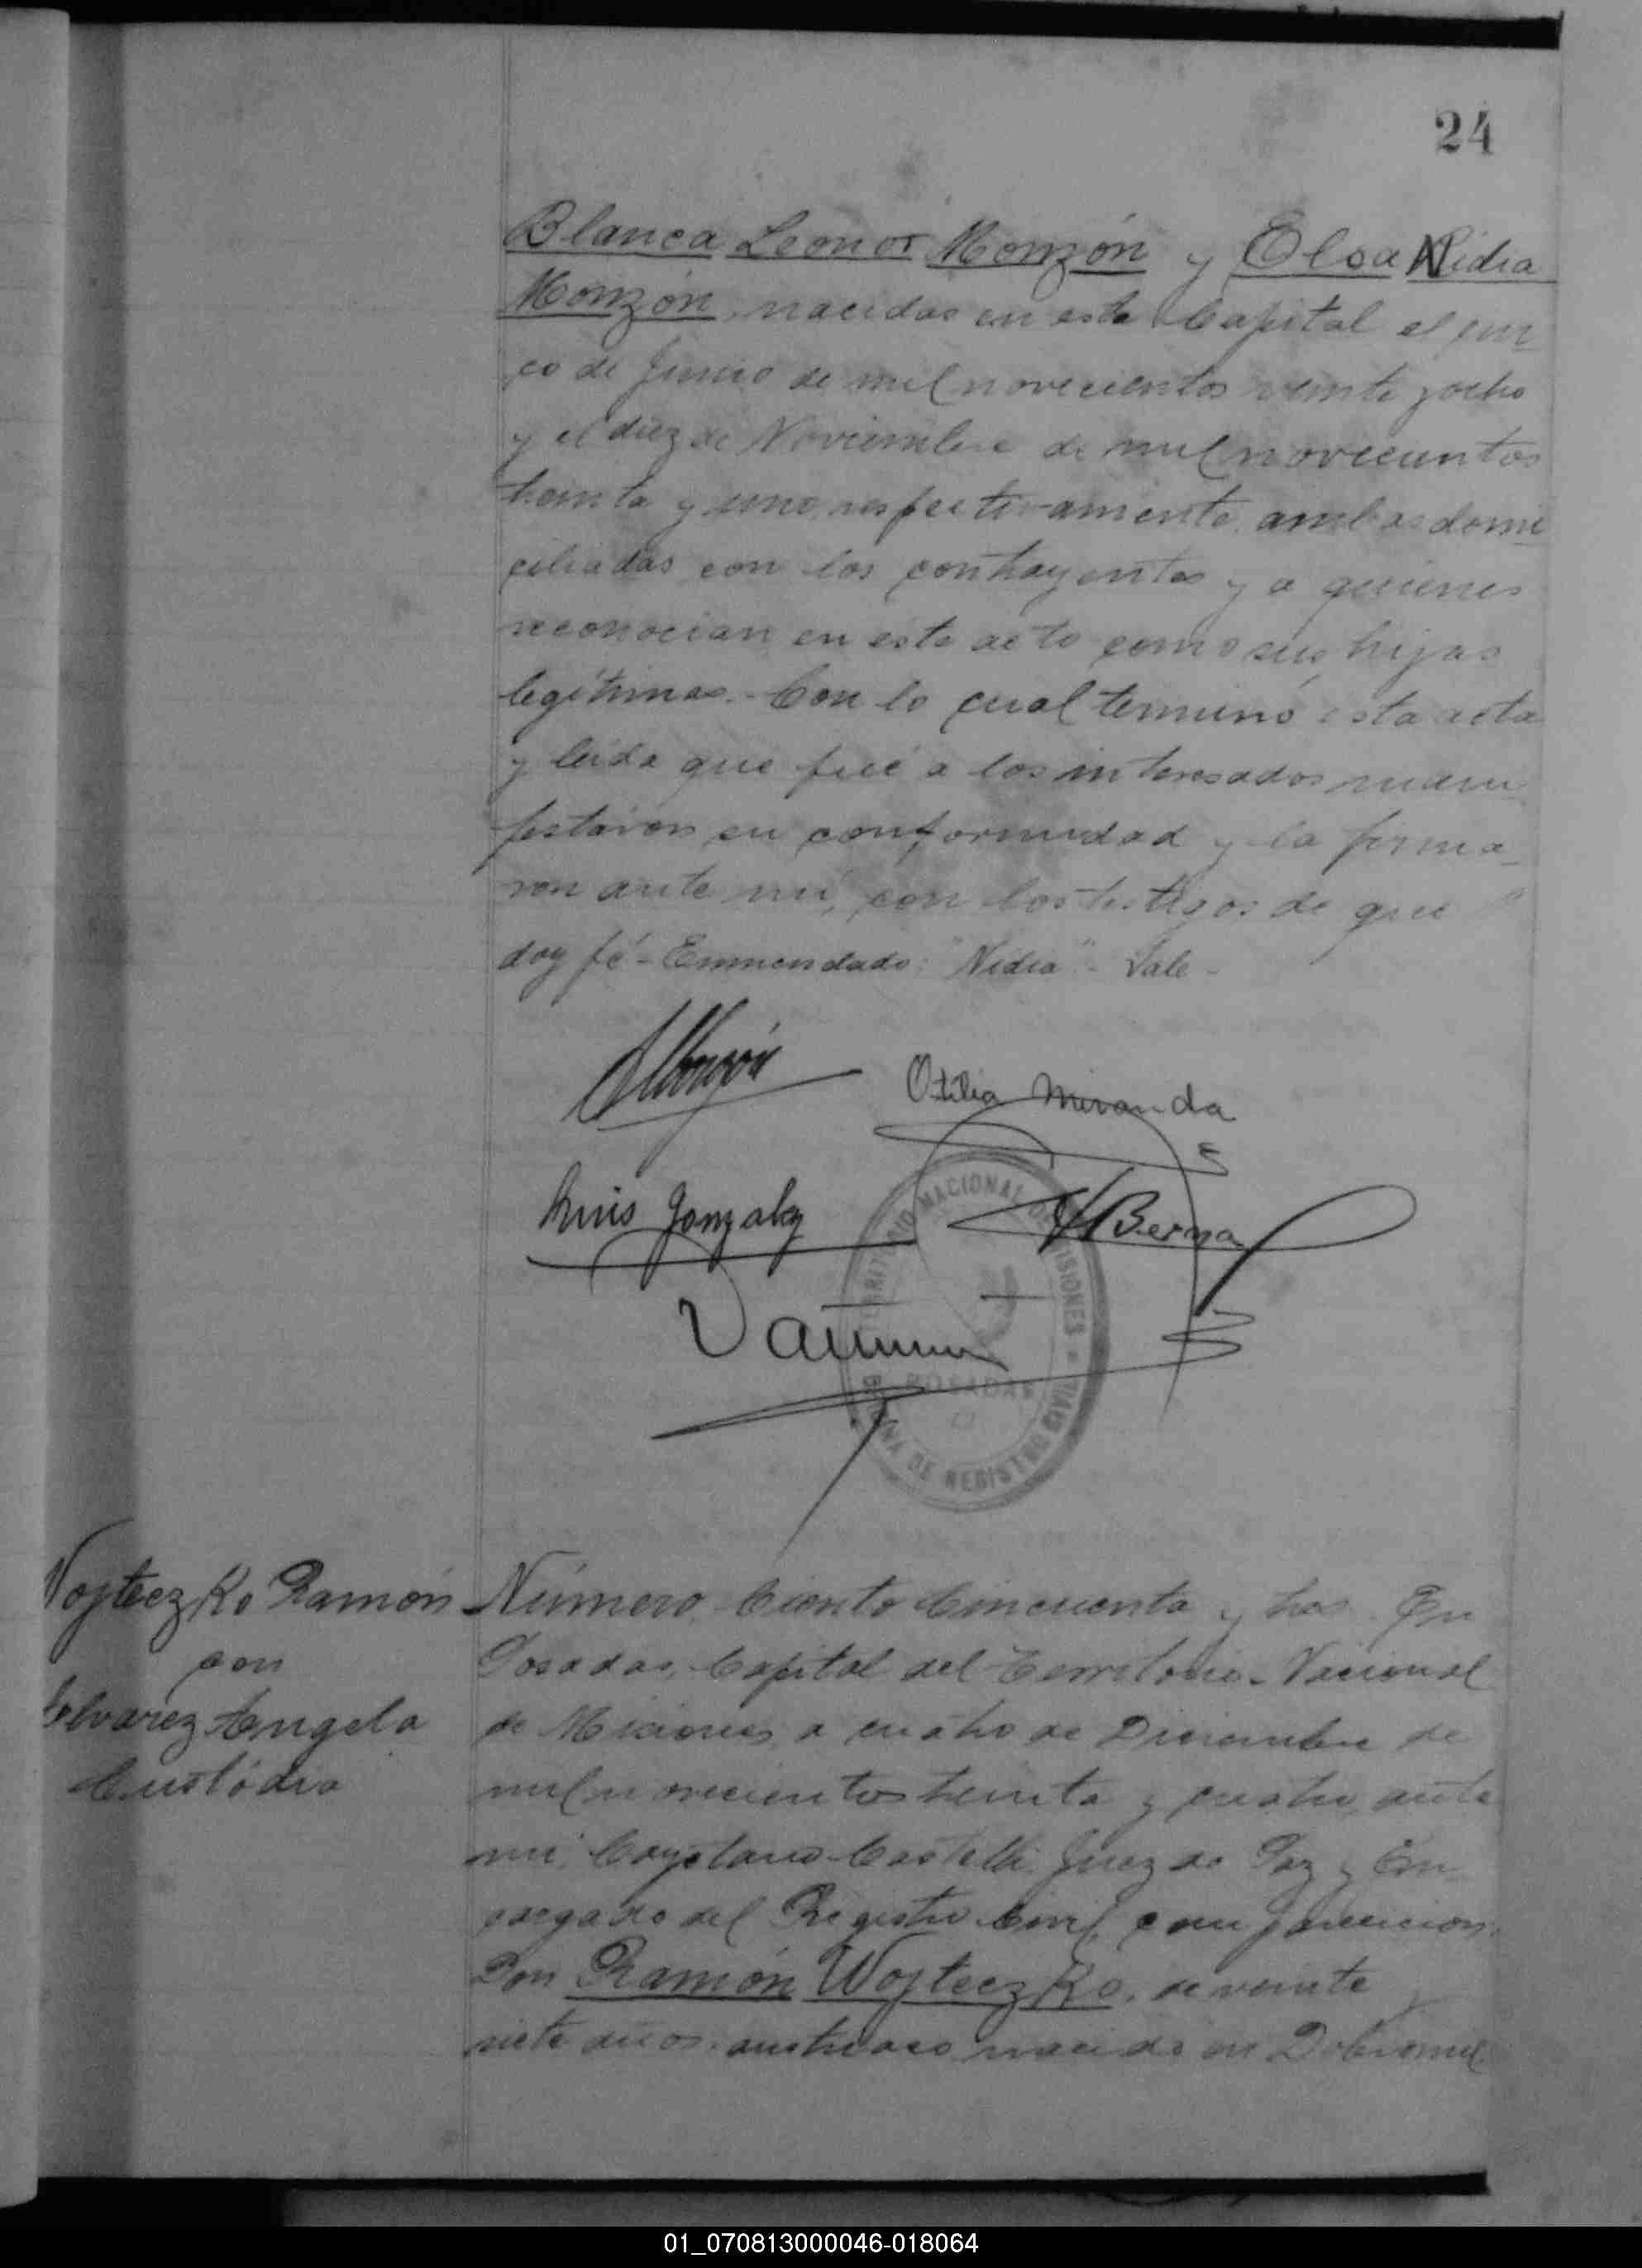 24
Blanca Leonor Monzón y Elsa Nidia
Monzón, nacidas en esta Capital el cin-
co de Junio de mil novecientos veinte y ocho
y el diez de Noviembre de mil novecientos
treinta y uno, respectivamente, ambas domi-
ciliadas con los contrayentes y a quienes
reconocian en este acto como sus hijas
legítimas.- Con lo cual terminó esta acta
y leida que fué a los interesados mani-
festaron su conformidad y la firma-
ron ante mí, con los testigos de que
doy fé - Enmendado: "Nidia" - Vale -
Monzón
Otilia Miranda
Luis Gonzalez
TERRITORIO NACIONAL DE MISIONES
POSADAS
OFICINA DE REGISTRO CIVIL
Wojteczko Ramón
con
Alvarez Angela
Custódia
Número Ciento Cincuenta y tres. En
Posadas, Capital del Territorio Nacional
de Misiones, a cuatro de Diciembre de
mil novecientos treinta y cuatro, ante
mí, Cayetano Castelli, Juez de Paz y En-
cargado del Registro Civil, comparecieron:
Don Ramón Wojteczko, de veinte y
siete años, austriaco, nacido en Dobromil
01_070813000046-018064